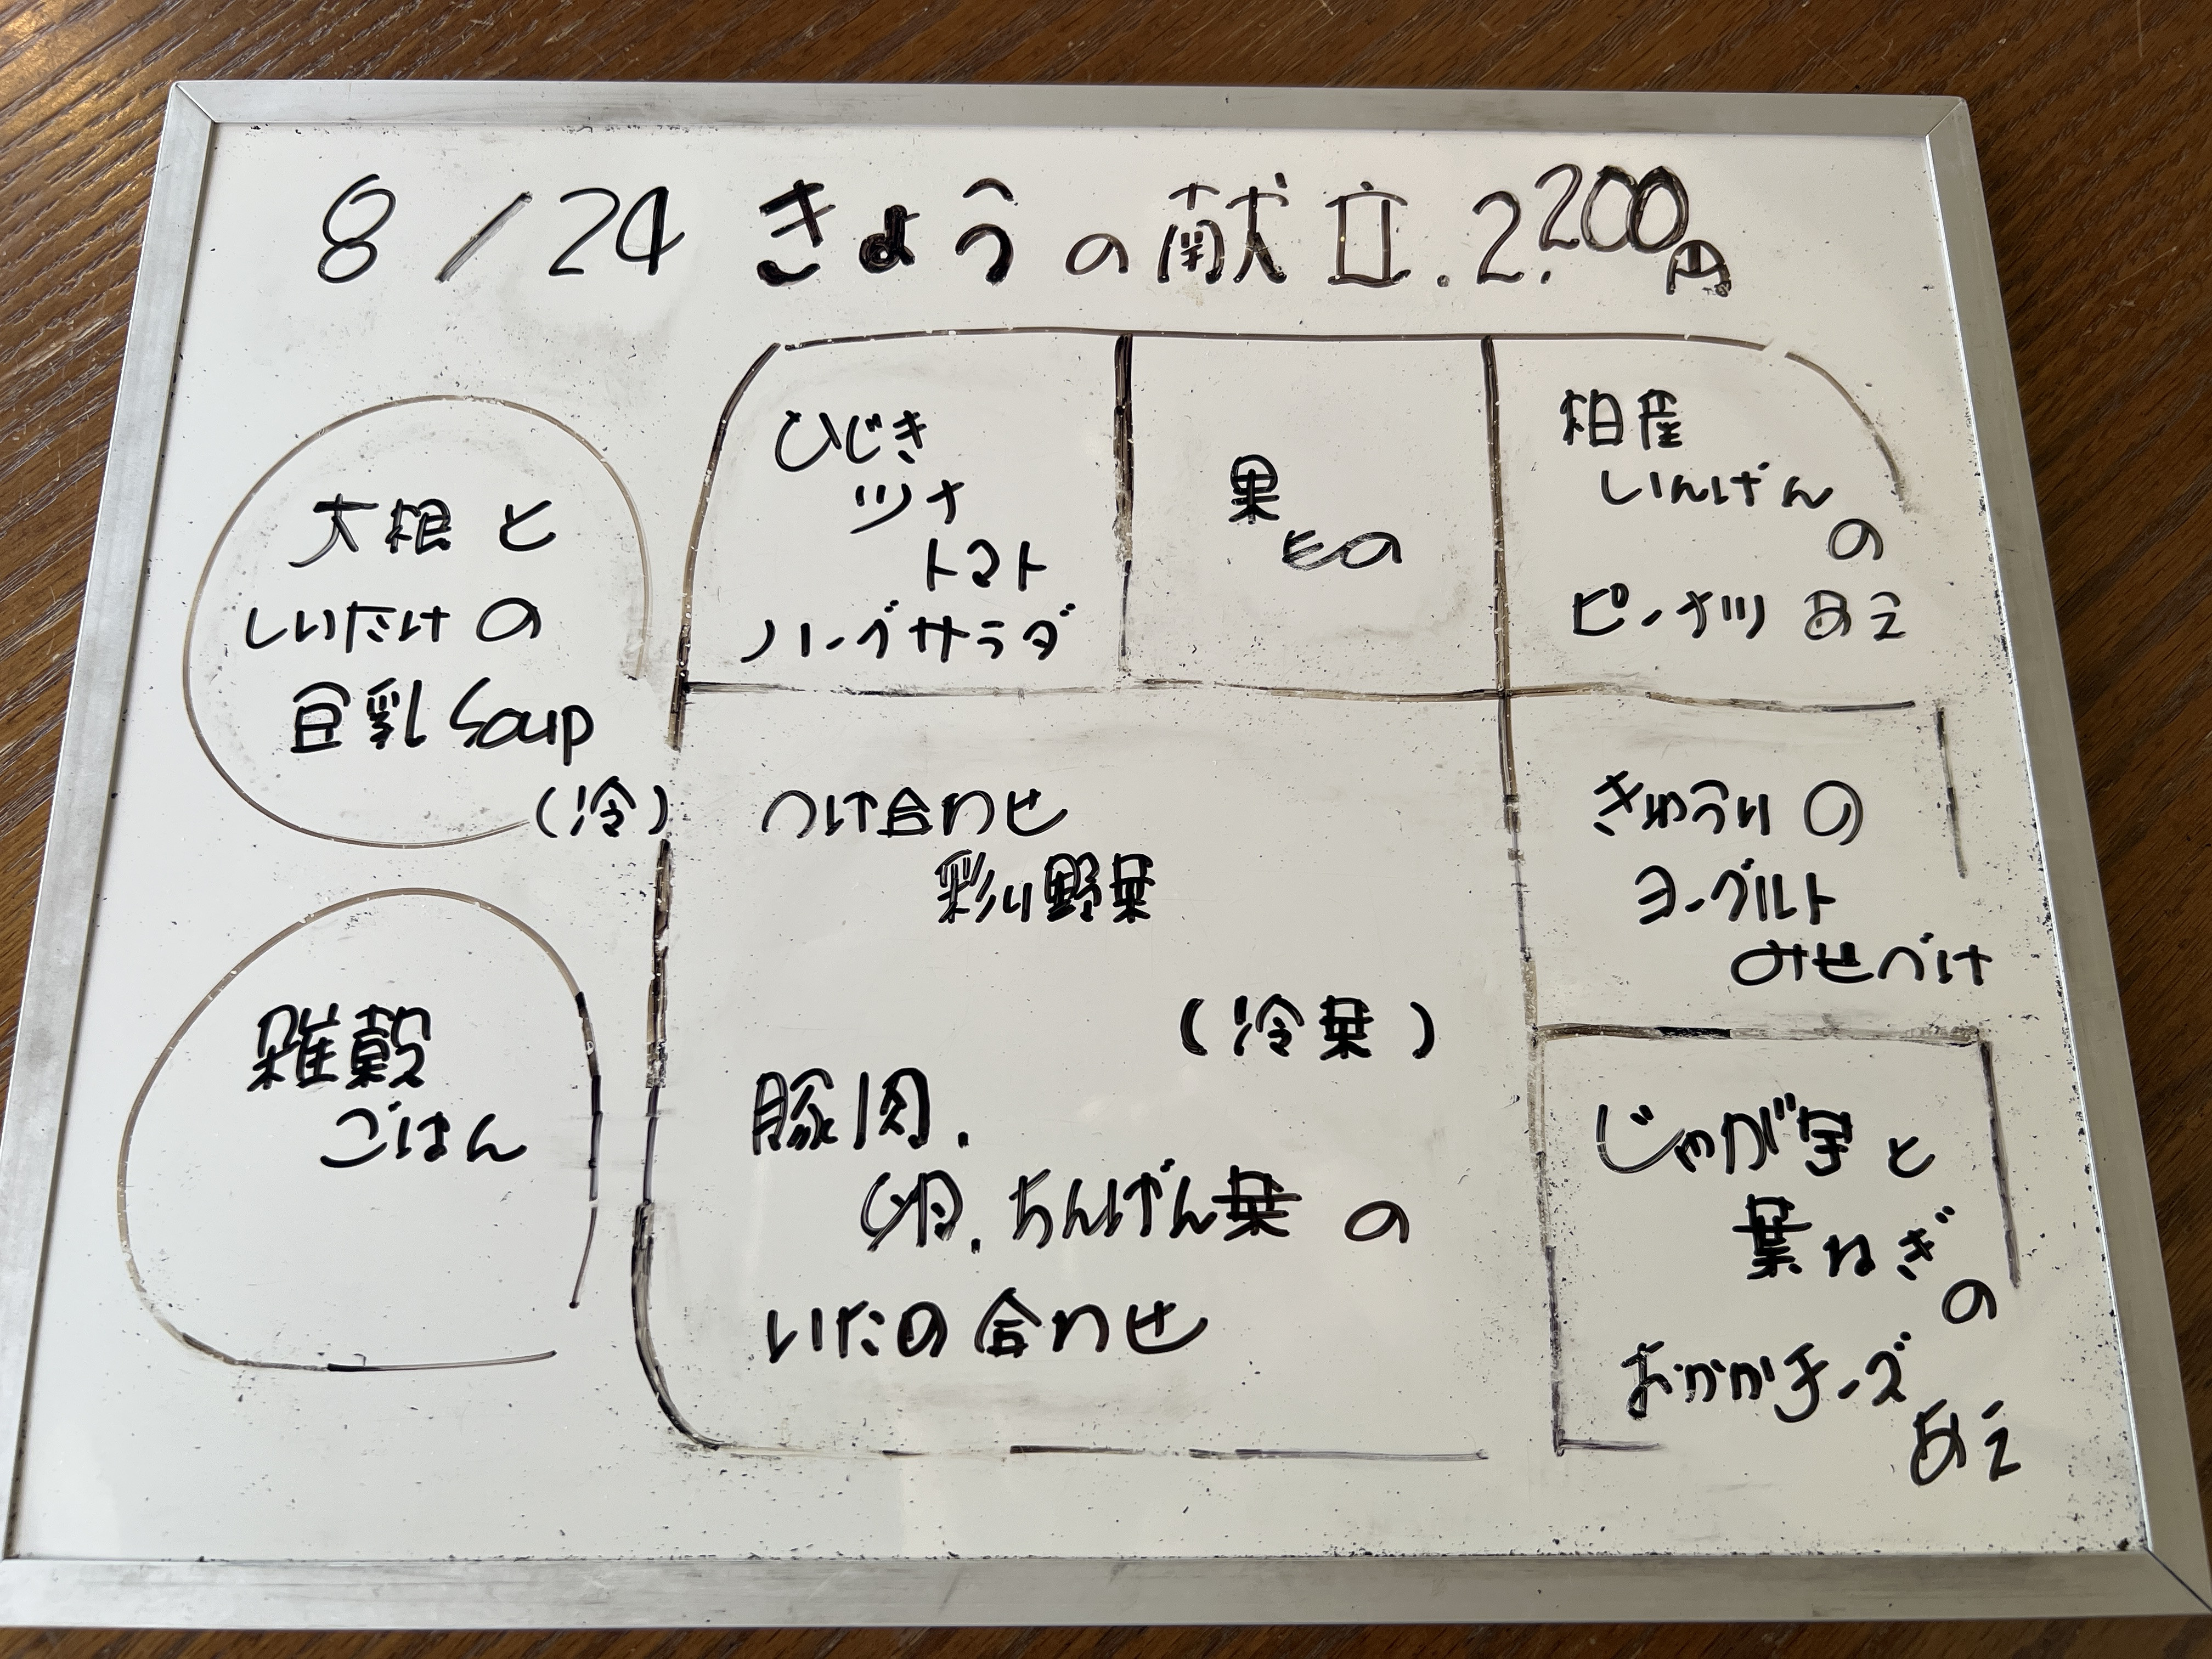 8/24 きょうの献立.2.200円
大根と
しいたけの
豆乳Soup
(冷)
雑穀
ごはん
ひじき
ツナ
トマト
ハーブサラダ
果
もの
柏産
いんげん
の
ピーナツあえ
つけ合わせ
彩り野菜
(冷菜)
豚肉.
卵.ちんげん菜の
いため合わせ
きゅうりの
ヨーグルト
みそづけ
じゃが芋と
葉ねぎ
の
おかかチーズ
あえ